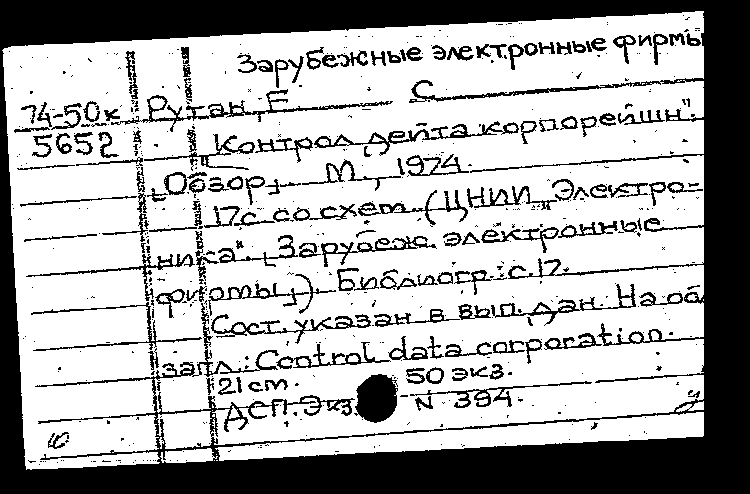 Зарубежные электронные фирмы
74-50к Рутан, Е С
5652 "Контрол дейта корпорейшн".
[Обзор]. М., 1974.
17с. со схем. (ЦНИИ "Электро-
ника". [Зарубеж. электронные
фирмы]). Библиогр.: с.17.
Сост. указан в вып. дан. На об.
загл.: Control data corporation.
21 см. 50 экз.
ДСП. Экз. N 394.